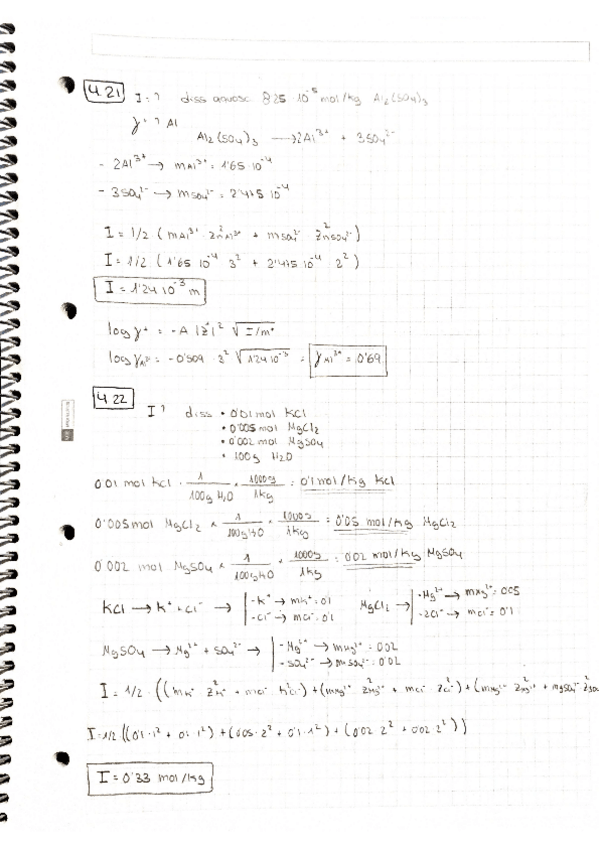 4.21 I=? diss aquosa 8'25·10⁻⁵ mol/kg Al₂(SO₄)₃
γ=? Al
Al₂(SO₄)₃ → 2Al³⁺ + 3SO₄²⁻
- 2Al³⁺ → mAl³⁺ = 1'65·10⁻⁴
- 3SO₄²⁻ → mSO₄²⁻ = 2'475·10⁻⁴
I = 1/2 (mAl³⁺ · z²Al³⁺ + mSO₄²⁻ · z²SO₄²⁻)
I = 1/2 (1'65·10⁻⁴ · 3² + 2'475·10⁻⁴ · 2²)
I = 1'24·10⁻³ m
log γ⁺ = -A |z⁺|² √I/m°
log γAl³⁺ = -0'509 · 3² √1'24·10⁻³ = γAl³⁺ = 0'69
4.22 I? diss • 0'01 mol KCl
• 0'005 mol MgCl₂
• 0'002 mol MgSO₄
• 100g H₂O
0'01 mol KCl · 1/100g H₂O · 1000g/1kg = 0'1 mol/kg KCl
0'005 mol MgCl₂ × 1/100g H₂O × 1000g/1kg = 0'05 mol/kg MgCl₂
0'002 mol MgSO₄ × 1/100g H₂O × 1000g/1kg = 0'02 mol/kg MgSO₄
KCl → K⁺ + Cl⁻ → - K⁺ → mK⁺ = 0'1 MgCl₂ → - Mg²⁺ → mMg²⁺ = 0'05
- Cl⁻ → mCl⁻ = 0'1 - 2Cl⁻ → mCl⁻ = 0'1
MgSO₄ → Mg²⁺ + SO₄²⁻ → - Mg²⁺ → mMg²⁺ = 0'02
- SO₄²⁻ → mSO₄²⁻ = 0'02
I = 1/2 · ((mK⁺ · z²K⁺ + mCl⁻ · z²Cl⁻) + (mMg²⁺ · z²Mg²⁺ + mCl⁻ · z²Cl⁻) + (mMg²⁺ · z²Mg²⁺ + mSO₄²⁻ · z²SO
I = 1/2 ((0'1 · 1² + 0'1 · 1²) + (0'05 · 2² + 0'1 · 1²) + (0'02 · 2² + 0'02 · 2²))
I = 0'33 mol/kg